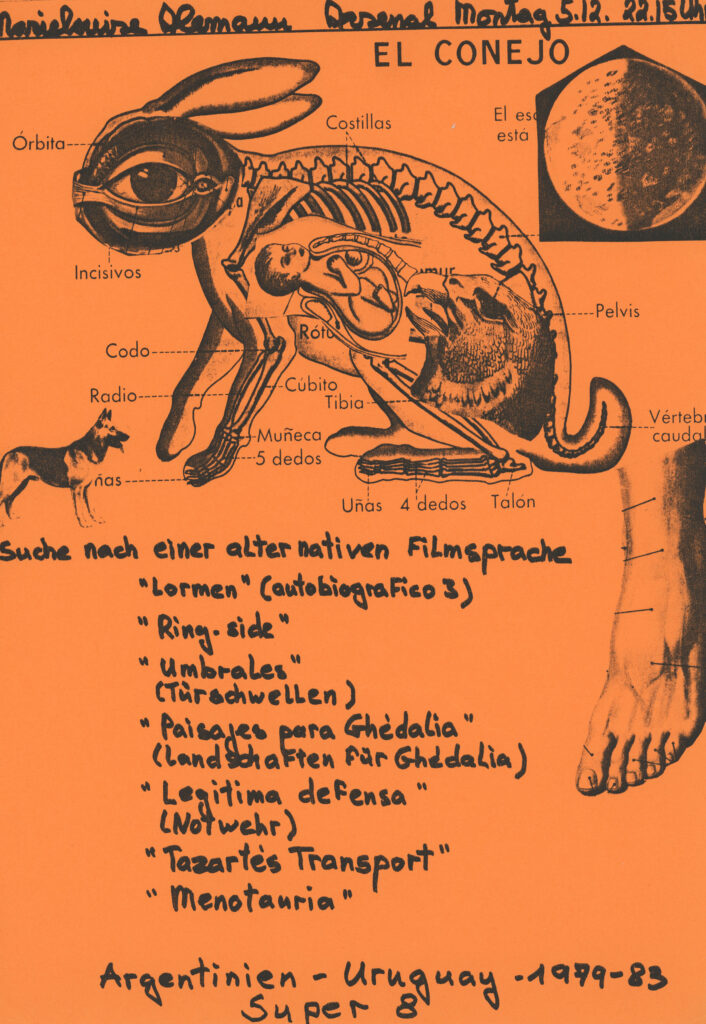 Marielouise Alemann Arsenal Montag 5.12. 22.15 Uhr
EL CONEJO
El esc
está
Costillas
Órbita
Incisivos
Pelvis
Rótu
Codo
Radio
Cúbito
Tibia
Muñeca
5 dedos
ñas
Vérteb
caudal
Uñas
4 dedos
Talón
Suche nach einer alternativen Filmsprache
"Lormen" (autobiografico 3)
"Ring-side"
"Umbrales"
(Türschwellen)
"Paisajes para Ghédalia"
(Landschaften für Ghédalia)
"Legitima defensa"
(Notwehr)
"Tazartés Transport"
"Menotauria"
Argentinien - Uruguay - 1979-83
Super 8